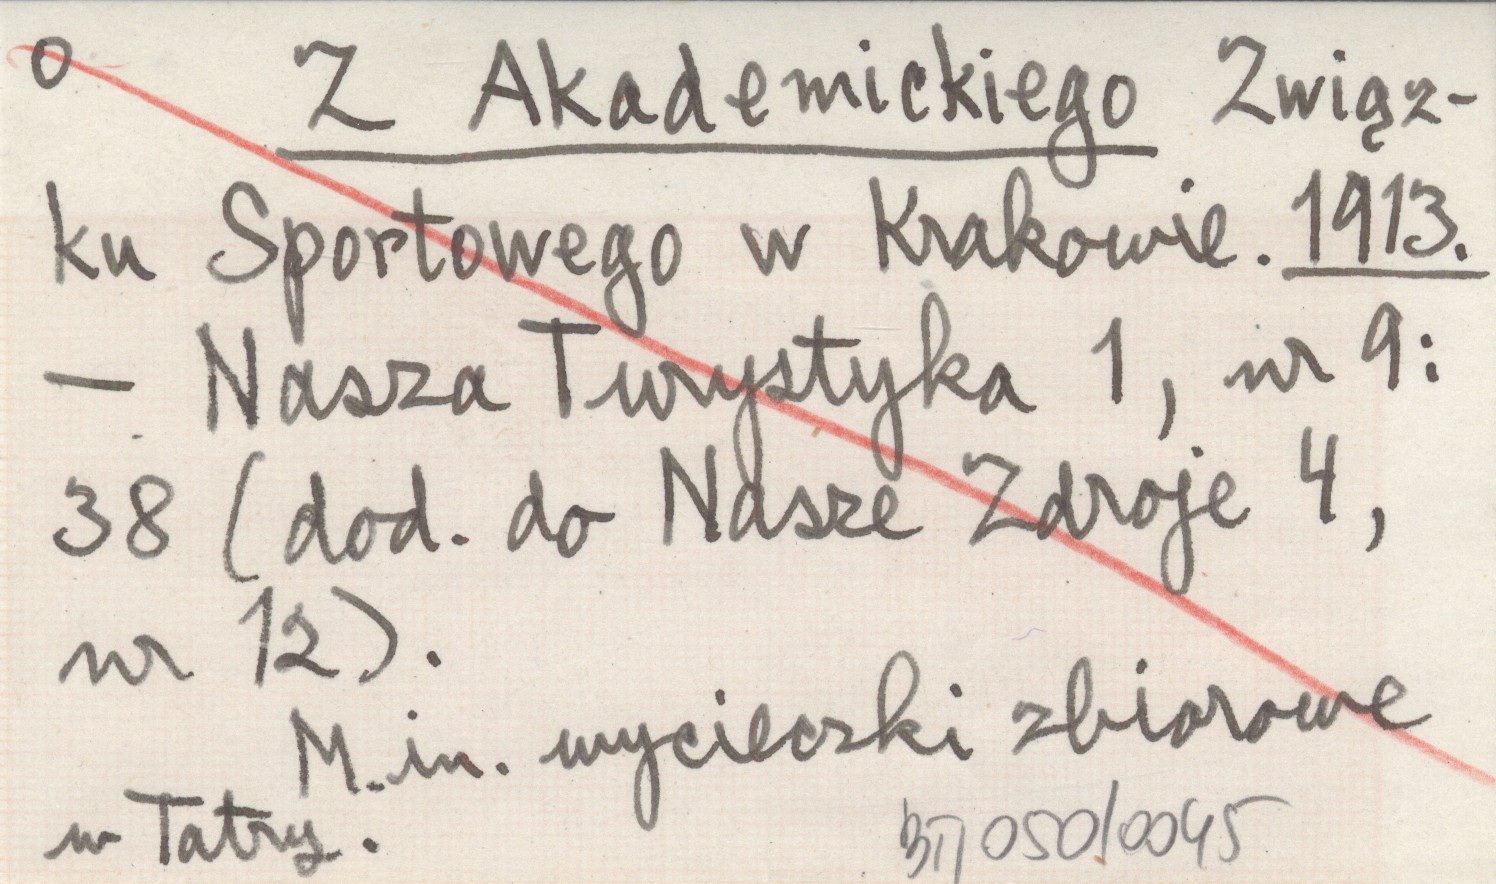 o Z Akademickiego Związ-
ku Sportowego w Krakowie. 1913.
— Nasza Turystyka 1, nr 9:
38 (dod. do Nasze Zdroje 4,
nr 12).
M.in. wycieczki zbiorowe
w Tatry.
050/0045